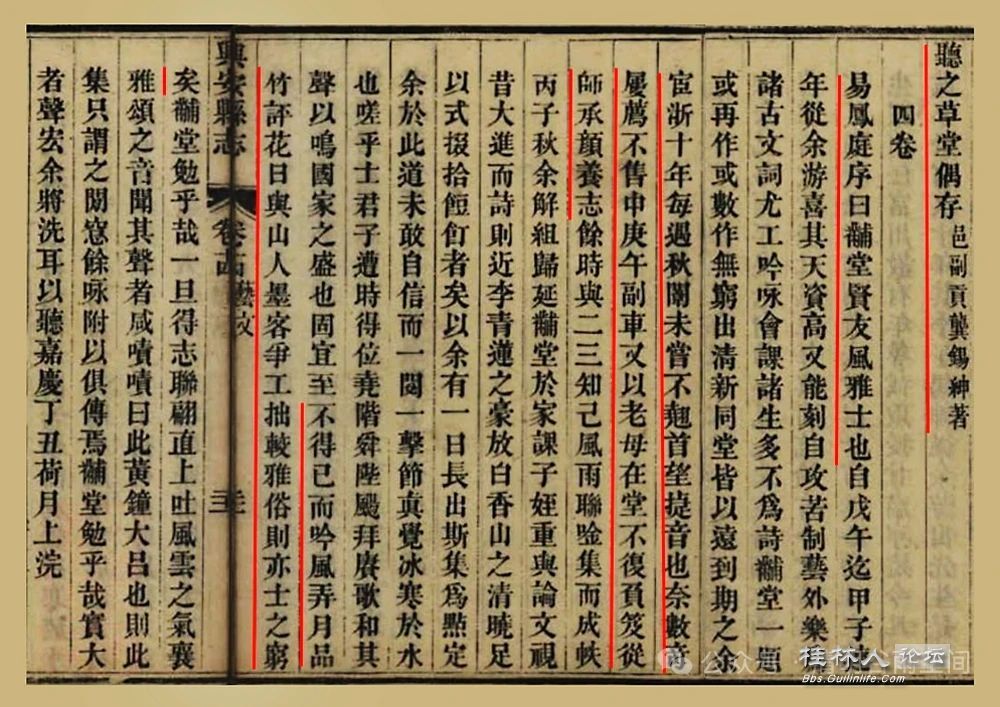 聽之草堂偶存 邑副貢龔錫紳著
四卷
易鳳庭序曰黼堂賢友風雅士也自戊午迄甲子
年從余游喜其天資高又能刻自攻苦制藝外樂
諸古文詞尤工吟咏會課諸生多不爲詩黼堂一題
或再作或數作無窮出清新同堂皆以遠到期之余
宦浙十年每遇秋闈未嘗不翹首望捷音也奈數奇
屢薦不售中庚午副車又以老母在堂不復負笈從
師承顏養志餘時與二三知己風雨聯唫集而成帙
丙子秋余解組歸延黼堂於家課子姪重與論文視
昔大進而詩則近李青蓮之豪放白香山之清曉足
以式掇拾餖飣者矣以余有一日長出斯集爲點定
余於此道未敢自信而一閱一擊節真覺冰寒於水
也嗟乎士君子遭時得位堯階舜陛颺拜賡歌和其
聲以鳴國家之盛也固宜至不得已而吟風弄月品
竹評花日與山人墨客爭工拙較雅俗則亦士之窮
興安縣志 卷十四 藝文
矣黼堂勉乎哉一旦得志聯翩直上吐風雲之氣襄
雅頌之音聞其聲者咸嘖嘖曰此黃鐘大呂也則此
集只謂之閒窓餘咏附以俱傳焉黼堂勉乎哉實大
者聲宏余將洗耳以聽嘉慶丁丑荷月上浣
公众号
空间
桂林人论坛
Bbs.Guilinlife.com